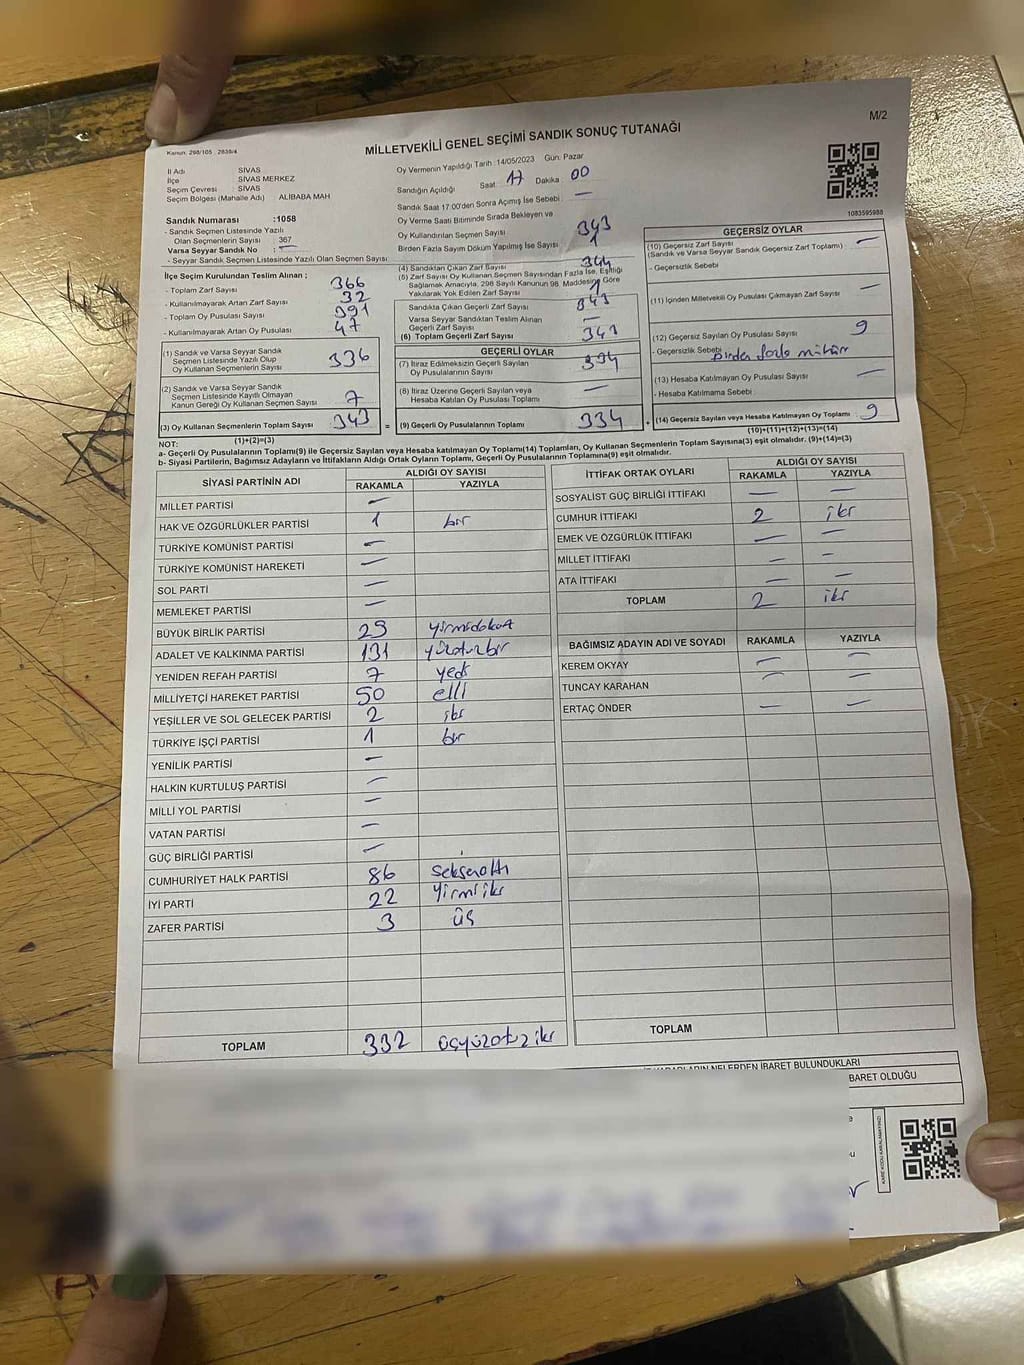 M/2
Kanun: 298/105 2839/4
MİLLETVEKİLİ GENEL SEÇİMİ SANDIK SONUÇ TUTANAĞI
İl Adı : SİVAS
İlçe : SİVAS MERKEZ
Seçim Çevresi : SİVAS
Seçim Bölgesi (Mahalle Adı) : ALİBABA MAH
Sandık Numarası :1058
- Sandık Seçmen Listesinde Yazılı
Olan Seçmenlerin Sayısı : 367
Varsa Seyyar Sandık No : —
- Seyyar Sandık Seçmen Listesinde Yazılı Olan Seçmen Sayısı
Oy Vermenin Yapıldığı Tarih :14/05/2023 Gün: Pazar
Sandığın Açıldığı Saat 17 Dakika 00
Sandık Saat 17:00'den Sonra Açımış İse Sebebi : —
Oy Verme Saati Bitiminde Sırada Bekleyen ve
Oy Kullandırılan Seçmen Sayısı 343
Birden Fazla Sayım Döküm Yapılmış İse Sayısı 1
1083595988
İlçe Seçim Kurulundan Teslim Alınan ;
- Toplam Zarf Sayısı 366
- Kullanılmayarak Artan Zarf Sayısı 32
- Toplam Oy Pusulası Sayısı 391
- Kullanılmayarak Artan Oy Pusulası 47
(1) Sandık ve Varsa Seyyar Sandık
Seçmen Listesinde Yazılı Olup
Oy Kullanan Seçmenlerin Sayısı 336
(2) Sandık ve Varsa Seyyar Sandık
Seçmen Listesinde Kayıtlı Olmayan
Kanun Gereği Oy Kullanan Seçmen Sayısı 7
(3) Oy Kullanan Seçmenlerin Toplam Sayısı 343
(1)+(2)=(3)
(4) Sandıktan Çıkan Zarf Sayısı 344
(5) Zarf Sayısı Oy Kullanan Seçmen Sayısından Fazla İse, Eşitliği
Sağlamak Amacıyla, 298 Sayılı Kanunun 98. Maddesine Göre
Yakılarak Yok Edilen Zarf Sayısı 1
Sandıkta Çıkan Geçerli Zarf Sayısı 343
Varsa Seyyar Sandıktan Teslim Alınan
Geçerli Zarf Sayısı —
(6) Toplam Geçerli Zarf Sayısı 343
GEÇERLİ OYLAR
(7) İtiraz Edilmeksizin Geçerli Sayılan
Oy Pusulalarının Sayısı 334
(8) İtiraz Üzerine Geçerli Sayılan veya
Hesaba Katılan Oy Pusulası Toplamı —
= (9) Geçerli Oy Pusulalarının Toplamı 334
GEÇERSİZ OYLAR
(10) Geçersiz Zarf Sayısı —
(Sandık ve Varsa Seyyar Sandık Geçersiz Zarf Toplamı)
- Geçersizlik Sebebi
(11) İçinden Milletvekili Oy Pusulası Çıkmayan Zarf Sayısı —
(12) Geçersiz Sayılan Oy Pusulası Sayısı 9
- Geçersizlik Sebebi birden fazla mühür
(13) Hesaba Katılmayan Oy Pusulası Sayısı —
- Hesaba Katılmama Sebebi
+ (14) Geçersiz Sayılan veya Hesaba Katılmayan Oy Toplamı 9
(10)+(11)+(12)+(13)=(14)
NOT:
a- Geçerli Oy Pusulalarının Toplamı(9) ile Geçersiz Sayılan veya Hesaba katılmayan Oy Toplamı(14) Toplamları, Oy Kullanan Seçmenlerin Toplam Sayısına(3) eşit olmalıdır. (9)+(14)=(3)
b- Siyasi Partilerin, Bağımsız Adayların ve İttifakların Aldığı Ortak Oyların Toplamı, Geçerli Oy Pusulalarının Toplamına(9) eşit olmalıdır.
SİYASİ PARTİNİN ADI ALDIĞI OY SAYISI
RAKAMLA YAZIYLA
MİLLET PARTİSİ —
HAK VE ÖZGÜRLÜKLER PARTİSİ 1 bir
TÜRKİYE KOMÜNİST PARTİSİ —
TÜRKİYE KOMÜNİST HAREKETİ —
SOL PARTİ —
MEMLEKET PARTİSİ —
BÜYÜK BİRLİK PARTİSİ 29 yirmidokuz
ADALET VE KALKINMA PARTİSİ 131 yüzotuzbir
YENİDEN REFAH PARTİSİ 7 yedi
MİLLİYETÇİ HAREKET PARTİSİ 50 elli
YEŞİLLER VE SOL GELECEK PARTİSİ 2 iki
TÜRKİYE İŞÇİ PARTİSİ 1 bir
YENİLİK PARTİSİ —
HALKIN KURTULUŞ PARTİSİ —
MİLLİ YOL PARTİSİ —
VATAN PARTİSİ —
GÜÇ BİRLİĞİ PARTİSİ —
CUMHURİYET HALK PARTİSİ 86 seksenaltı
İYİ PARTİ 22 yirmiiki
ZAFER PARTİSİ 3 üç
TOPLAM 332 üçyüzotuziki
İTTİFAK ORTAK OYLARI ALDIĞI OY SAYISI
RAKAMLA YAZIYLA
SOSYALİST GÜÇ BİRLİĞİ İTTİFAKI — —
CUMHUR İTTİFAKI 2 iki
EMEK VE ÖZGÜRLÜK İTTİFAKI — —
MİLLET İTTİFAKI — —
ATA İTTİFAKI — —
TOPLAM 2 iki
BAĞIMSIZ ADAYIN ADI VE SOYADI RAKAMLA YAZIYLA
KEREM OKYAY — —
TUNCAY KARAHAN — —
ERTAÇ ÖNDER — —
TOPLAM
NELERDEN İBARET BULUNDUKLARI
BARET OLDUĞU